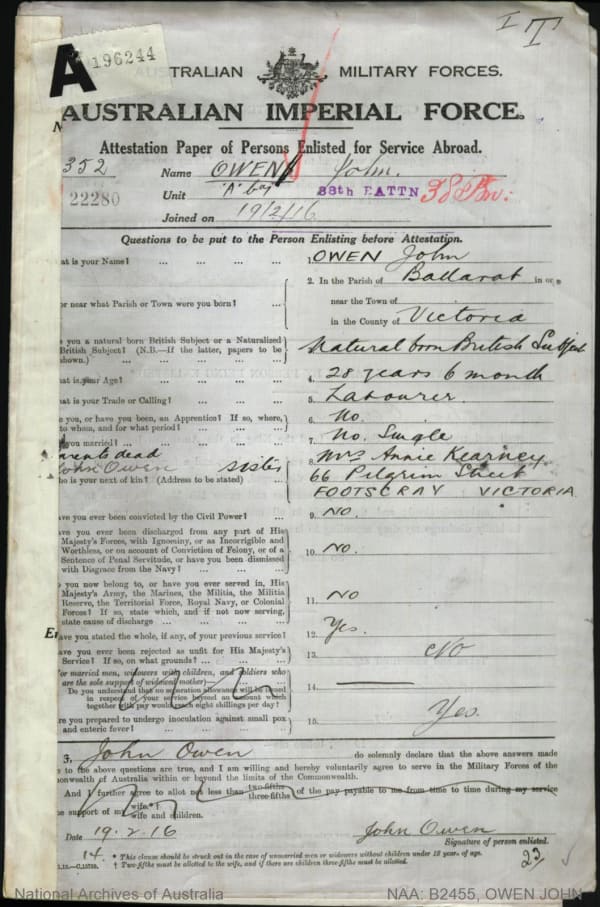 I T
A 196244
AUSTRALIAN MILITARY FORCES.
AUSTRALIAN IMPERIAL FORCE.
Attestation Paper of Persons Enlisted for Service Abroad.
352 Name OWEN John.
22280 Unit "A" Coy 38th BATTN 38 Bn.
Joined on 19/2/16
Questions to be put to the Person Enlisting before Attestation.
at is your Name? ... ... ... ... 1. OWEN John
2. In the Parish of Ballarat in or
or near what Parish or Town were you born? ... near the Town of
in the County of Victoria
you a natural born British Subject or a Naturalized
British Subject? (N.B.—If the latter, papers to be
shown.) Natural born British Subject
at is your Age? ... ... ... ... 4. 28 years 6 month
at is your Trade or Calling? ... ... ... 5. Labourer.
you, or have you been, an Apprentice? If so, where,
to whom, and for what period? ... ... 6. No.
you married? ... ... ... 7. No. Single
Parents dead 8. Mrs Annie Kearney
John Owen sister 66 Pilgrim Street
ho is your next of kin? (Address to be stated) ... FOOTSCRAY VICTORIA
ave you ever been convicted by the Civil Power? ... 9. NO.
ave you ever been discharged from any part of His
Majesty's Forces, with Ignominy, or as Incorrigible and
Worthless, or on account of Conviction of Felony, or of a
Sentence of Penal Servitude, or have you been dismissed
with Disgrace from the Navy? ... ... 10. No.
you now belong to, or have you ever served in, His
Majesty's Army, the Marines, the Militia, the Militia
Reserve, the Territorial Force, Royal Navy, or Colonial
Forces? If so, state which, and if not now serving,
state cause of discharge ... ... ... 11. NO
ave you stated the whole, if any, of your previous service? 12. Yes.
ave you ever been rejected as unfit for His Majesty's
Service? If so, on what grounds? ... ... 13. No
For married men, widowers with children, and soldiers who
are the sole support of widowed mother)—
Do you understand that no separation allowance will be issued
in respect of your service beyond an amount which
together with pay would reach eight shillings per day? 14.
re you prepared to undergo inoculation against small pox
and enteric fever? ... ... ... 15. Yes.
3, John Owen do solemnly declare that the above answers made
to the above questions are true, and I am willing and hereby voluntarily agree to serve in the Military Forces of the
onwealth of Australia within or beyond the limits of the Commonwealth.
And I further agree to allot not less than two-fifths three-fifths of the pay payable to me from time to time during my service
support of my wife.*†
wife and children.
Date 19.2.16 John Owen
Signature of person enlisted.
14. * This clause should be struck out in the case of unmarried men or widowers without children under 18 years of age.
† Two-fifths must be allotted to the wife, and if there are children three-fifths must be allotted.
National Archives of Australia NAA: B2455, OWEN JOHN